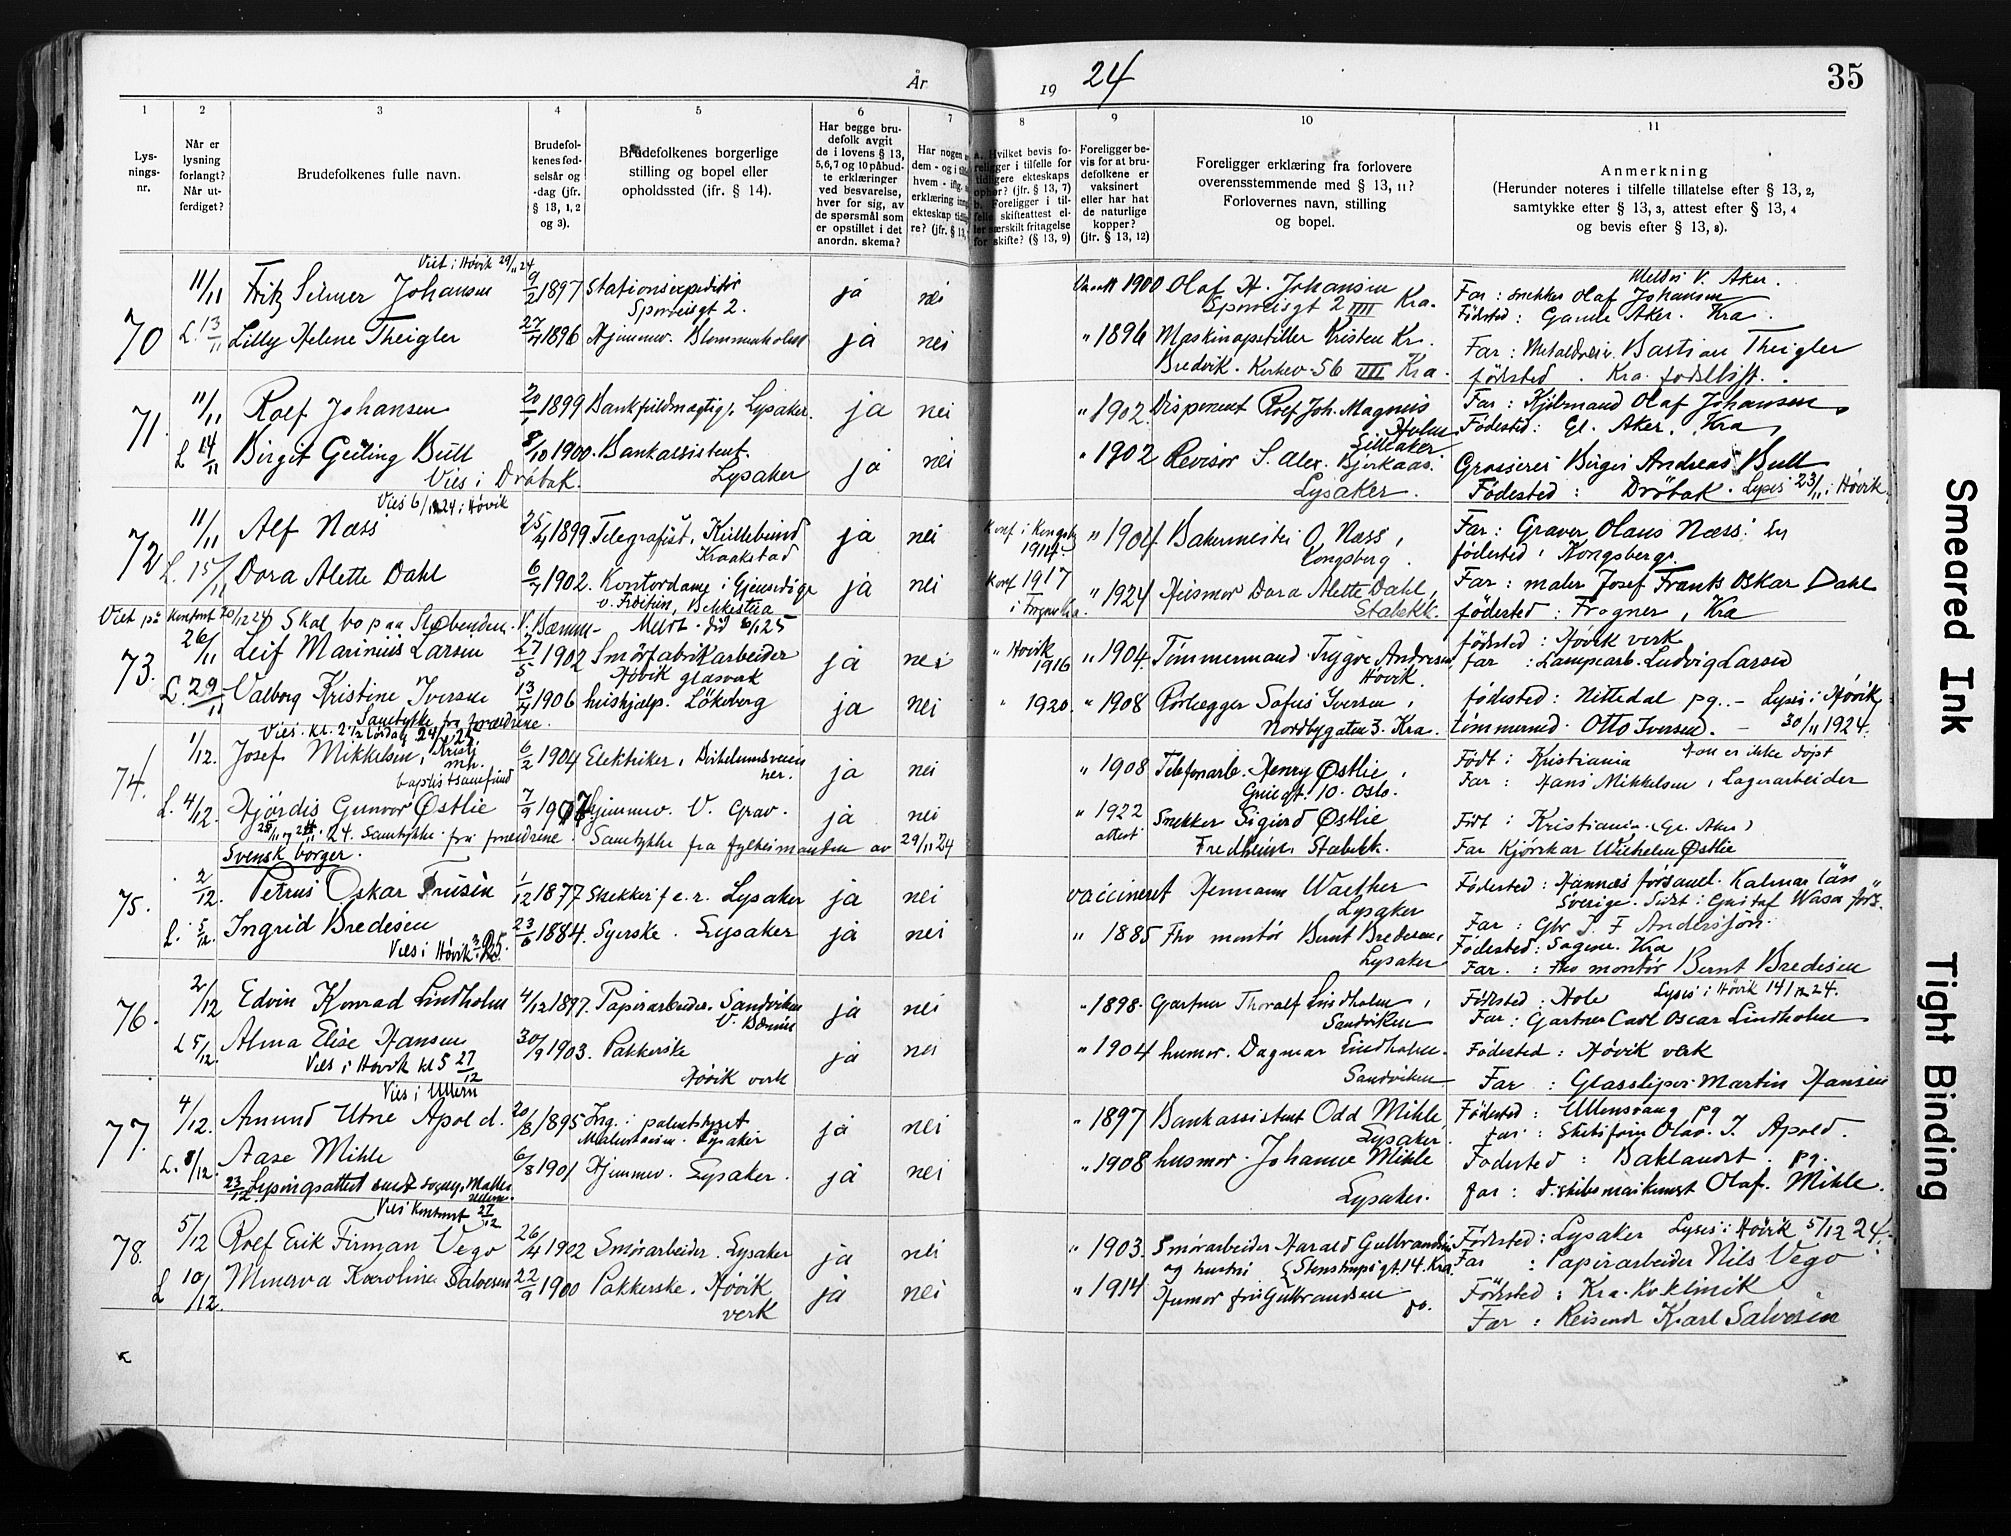 År
19 24
35
1
2
3
4
5
6
7
8
9
10
11
Lys-
nings-
nr.
Når er
lysning
forlangt?
Når ut-
ferdiget?
Brudefolkenes fulle navn.
Brudefol-
kenes fød-
selsår og
-dag (jfr.
§ 13, 1, 2
og 3).
Brudefolkenes borgerlige
stilling og bopel eller
opholdssted (ifr. § 14).
Har begge bru-
defolk avgit
de i lovens § 13,
5,6,7 og 10 påbud-
te erklæringer
ved besvarelse,
hver for sig, av
de spørsmål som
er opstillet i det
anordn. skema?
Har nogen
dem - og i
hvem - iflg.
erklæring
ekteskap
re? (jfr. § 13,
a. Hvilket bevis fo-
religger i tilfelle for
tidligere ekteskaps
ophør? (jfr. § 13, 7)
b. Foreligger i til-
felle skifteattest el-
ler særskilt fritagelse
for skifte? (§ 13, 9)
Foreligger be-
vis for at bru-
defolkene er
vaksinert
eller har hat
de naturlige
kopper?
(jfr. § 13, 12)
Foreligger erklæring fra forlovere
overensstemmende med § 13, 11?
Forlovernes navn, stilling
og bopel.
Anmerkning
(Herunder noteres i tilfelle tillatelse efter § 13, 2,
samtykke efter § 13, 3, attest efter § 13, 4
og bevis efter § 13, 8).
Viet i Høvik 29/11 24
70 11/11 Fritz Selmer Johansen 9/2 1897 Stationsexpeditør ja nei 1900 Olaf H. Johansen
Meldt V. Aker.
Sporveisgt 2. Sporveisgt 2 IIII Kra. Far: snekker Olaf Johansen
Fødested: Gamle Aker. Kra.
L. 13/11 Lilly Helene Theigler 27/7 1896 Hjemmev. Blommenholm ja nei " 1896 Maskinopstiller Kristen Kr.
Bredvik. Kirkev. 56 IIII Kra. Far: Bastian Theigler
fødested . Kra. fødselsst.
71. 11/11 Rolf Johansen 20/1 1899 Bankfuldmægtig. Lysaker. ja nei " 1902. Disponent Rolf Joh. Magnus
Holm Lilleaker Far: Kjølmand Olaf Johansen
Fødested: Gl. Aker. Kra
L 14/11 Birgit Geiling Bull 8/10 1900. Bankassistent. Lysaker ja nei " 1902 Revisor S. Alex. Bjerkaas.
Lysaker. Grosserer Birger Andreas Bull
Vies i Drøbak.
Fødested: Drøbak. Lyses 23/11 i Høvik
Vies 6/12 24 i Høvik
72 11/11 Alf Næss 25/4 1899 Telegrafist, Kraakstad ja nei Konf i Kongsb. 1914 " 1904 Bakermester O. Næss,
Kongsberg. Far: Graver Olaus Næss.
fødested: Kongsberg.
L. 15/11 Dora Alette Dahl 6/7 1902. Kontordame i Gjensidige ja nei Konf 1917 " 1924 Husmor Dora Alette Dahl,
Bekkestua Stabekk. Far: maler Josef Frants Oskar Dahl
fødested: Frogner, Kra
Viet på kontoret 20/12 24 Skal bo paa Slebenden. V. Bærum - Meldt. did 5/1 25
73. 26/11 Leif Marinius Larsen 27/5 1902 Smørfabrikarbeider ja nei " Høvik 1916 " 1904. Tømmermand Trygve Andresen
Høvik glasverk Høvik. fødested: Høvik verk
far: Lampearb. Ludvig Larsen
L. 29/11 Valborg Kristine Iversen 13/4 1906 hushjælp. Løkeberg ja nei " 1920. " 1908 Rørlægger Sofus Iversen,
Nordbygaten 3. Kra. fødested: Nittedal pg. - Lyses i Høvik
Samtykke fra forældrene.
tømmermd. Otto Iversen. - 30/11 1924.
Vies. kl. 2 1/2 Lørdag 24/1 25
74. 1/12. Josef Mikkelsen, Kristi
mh.
baptistsamfund 6/2 1904 Elektriker, Birkelunsveien ja nei " 1908 Telefonarb. Henry Østlie,
10. Oslo. Født: Kristiania Han er ikke døpt
Far: Hans Mikkelsen, Lagerarbeider
L. 4/12. Hjørdis Gunvor Østlie 7/9 1907 Hjemmev. V. Grav. ja nei " 1922
attest Snekker Sigurd Østlie
Fredheim, Stabekk. Født: Kristiania. (Gl. Aker)
Far Kjørekar Wilhelm Østlie
24. Samtykke fra forældrene. Samtykke fra fylkesmanden av 29/11 24
Svensk borger.
75. 2/12. Petrus Oskar Frusén 1/12 1877 Snekker f e. r. Lysaker ja nei vaccineret Hermann Walther
Lysaker Fødested: Hannäs församl. Kalmar län
Sverige. Sidst: Gustaf Wasa förs.
Far: Gbr J. F Andersson.
L. 5/12. Ingrid Bredesen 23/6 1884. Syerske. Lysaker ja nei " 1885 Fhv montør Bernt Bredesen,
Lysaker Fødested: Sagene. Kra
Far. : Fhv montør Bernt Bredesen
Vies i Høvik
76. 2/12 Edvin Konrad Lindholm 4/12 1897. Papirarbeider. Sandviken ja nei " 1898. Gartner Thoralf Lindholm,
V. Bærum Sandviken Fødested: Hole Lyses i Høvik 14/12 24.
Far: Gartner Carl Oscar Lindholm
L 5/12. Alma Elise Hansen 30/9 1903. Pakkerske ja nei " 1904 husmor. Dagmar Lindholm.
Høvik verk Sandviken Fødested: Høvik verk
Vies i Høvik kl 5 27/12
Far : Glassliper Martin Hansen
Vies i Ullern
77. 4/12. Amund Utne Apold. 20/8 1895 Ing. i patentstyret ja nei " 1897 Bankassistent Odd Mihle,
Lysaker Lysaker. Fødested: Ullensvang pg
far: Olav. J. Apold.
L. 8/12. Aase Mihle 6/8 1901 Hjemmev. Lysaker. ja nei " 1908 husmor. Johanne Mihle
Lysaker. Fødested : Baklandet. pg.
far: d. skibsmaskinist Olaf. Mihle.
23/12. Lysingsattest sendt sogнepr. Møller
Ullern.
Vies Kontoret 27/12
78. 5/12 Rolf Erik Firman Vego 26/4 1902 Smørarbeider. Lysaker ja nei " 1903. Smørarbeider Harald Gulbrandsen
og hustru Stenstrupsgt. 14. Kra. Fødested: Lysaker Lyses i Høvik 5/12 24.
Far : Papirarbeider Nils Vego
L 10/12. Minerva Karoline Salvesen 22/9 1900 Pakkerske. Høvik
verk ja nei " 1914 Husmor fru Gulbrandsen
do. Fødested: Kra. Kv. klinik
Far : Reisende Karl Salvesen
Smeared Ink
Tight Binding